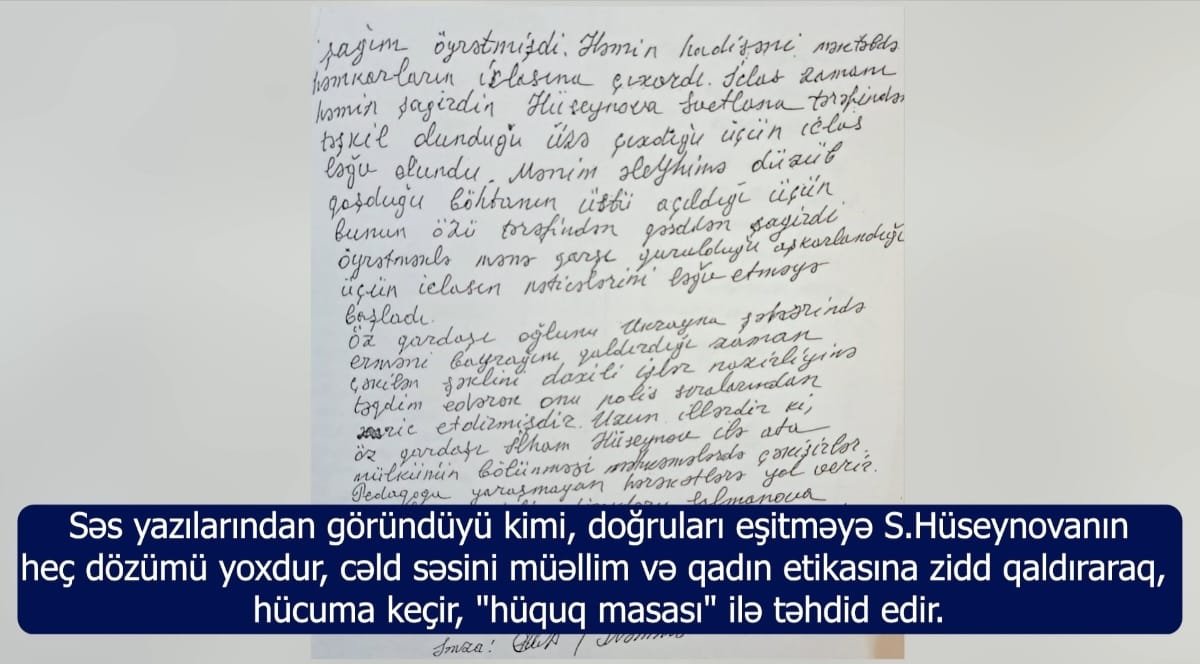 şagim öyrətmişdi. Həmin hadisəni məktəbdə
həmkarların iclasına çıxardı. İclas zamanı
həmin şagirdin Hüseynova Svetlana tərəfindən
təşkil olunduğu üzə çıxdığı üçün iclas
ləğv olundu. Mənim əleyhimə düzüb
qoşduğu böhtanın üstü açıldığı üçün
bunun özü tərəfindən qəsdən şagirdi
öyrətməklə mənə qarşı qurulduğu aşkarlandığı
üçün iclasın nəticələrini ləğv etməyə
başladı.
Öz qardaşı oğlunu Ukrayna şəhərində
erməni bayrağını qaldırdığı zaman
çəkilən şəklini daxili işlər nazirliyinə
təqdim edərək onu polis sıralarından
xaric etdirmişdir. Uzun illərdir ki,
öz qardaşı İlham Hüseynov ilə ata
mülkünün bölünməsi məhkəmələrdə çəkişirlər.
Pedaqoqa yaraşmayan hərəkətlərə yol verir.
Salmanova
Səs yazılarından göründüyü kimi, doğruları eşitməyə S.Hüseynovanın
heç dözümü yoxdur, cəld səsini müəllim və qadın etikasına zidd qaldıraraq,
hücuma keçir, "hüquq masası" ilə təhdid edir.
İmza: